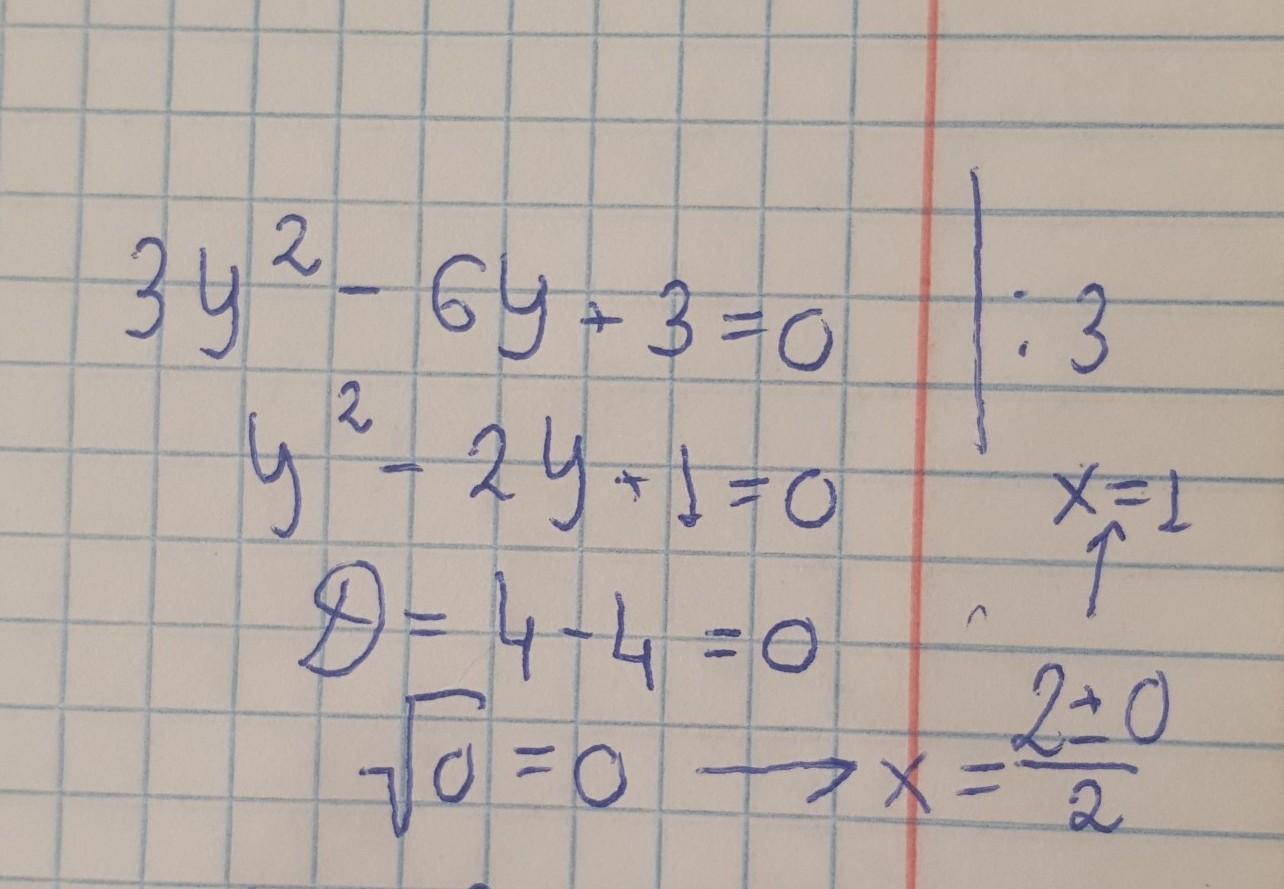 3y² - 6y + 3 = 0 | : 3
y² - 2y + 1 = 0
x = 1
D = 4 - 4 = 0 ↑
√0 = 0 → x = (2 ± 0)/2